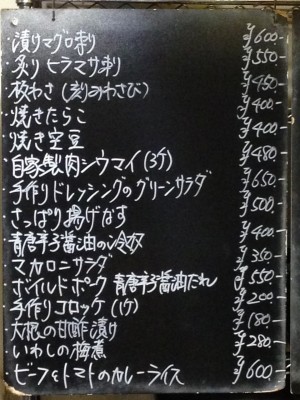 ・漬けマグロ刺り ¥600-
・炙りヒラマサ刺り ¥550-
・板わさ(刻みわさび) ¥450-
・焼きたらこ ¥400-
・焼き空豆 ¥400-
・自家製肉シウマイ(3ケ) ¥480-
・手作りドレッシングのグリーンサラダ ¥650-
・さっぱり揚げなす ¥500-
・青唐辛子醤油の冷奴 ¥400-
・マカロニサラダ ¥350-
・ボイルドポーク 青唐辛子醤油だれ ¥550-
・手作りコロッケ(1ケ) ¥200-
・大根の甘酢漬け ¥180-
・いわしの梅煮 ¥280-
・ビーフ&トマトのカレーライス ¥600-